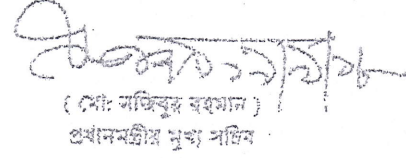 ( মো: নজিবুর রহমান )
প্রধানমন্ত্রীর মুখ্য সচিব